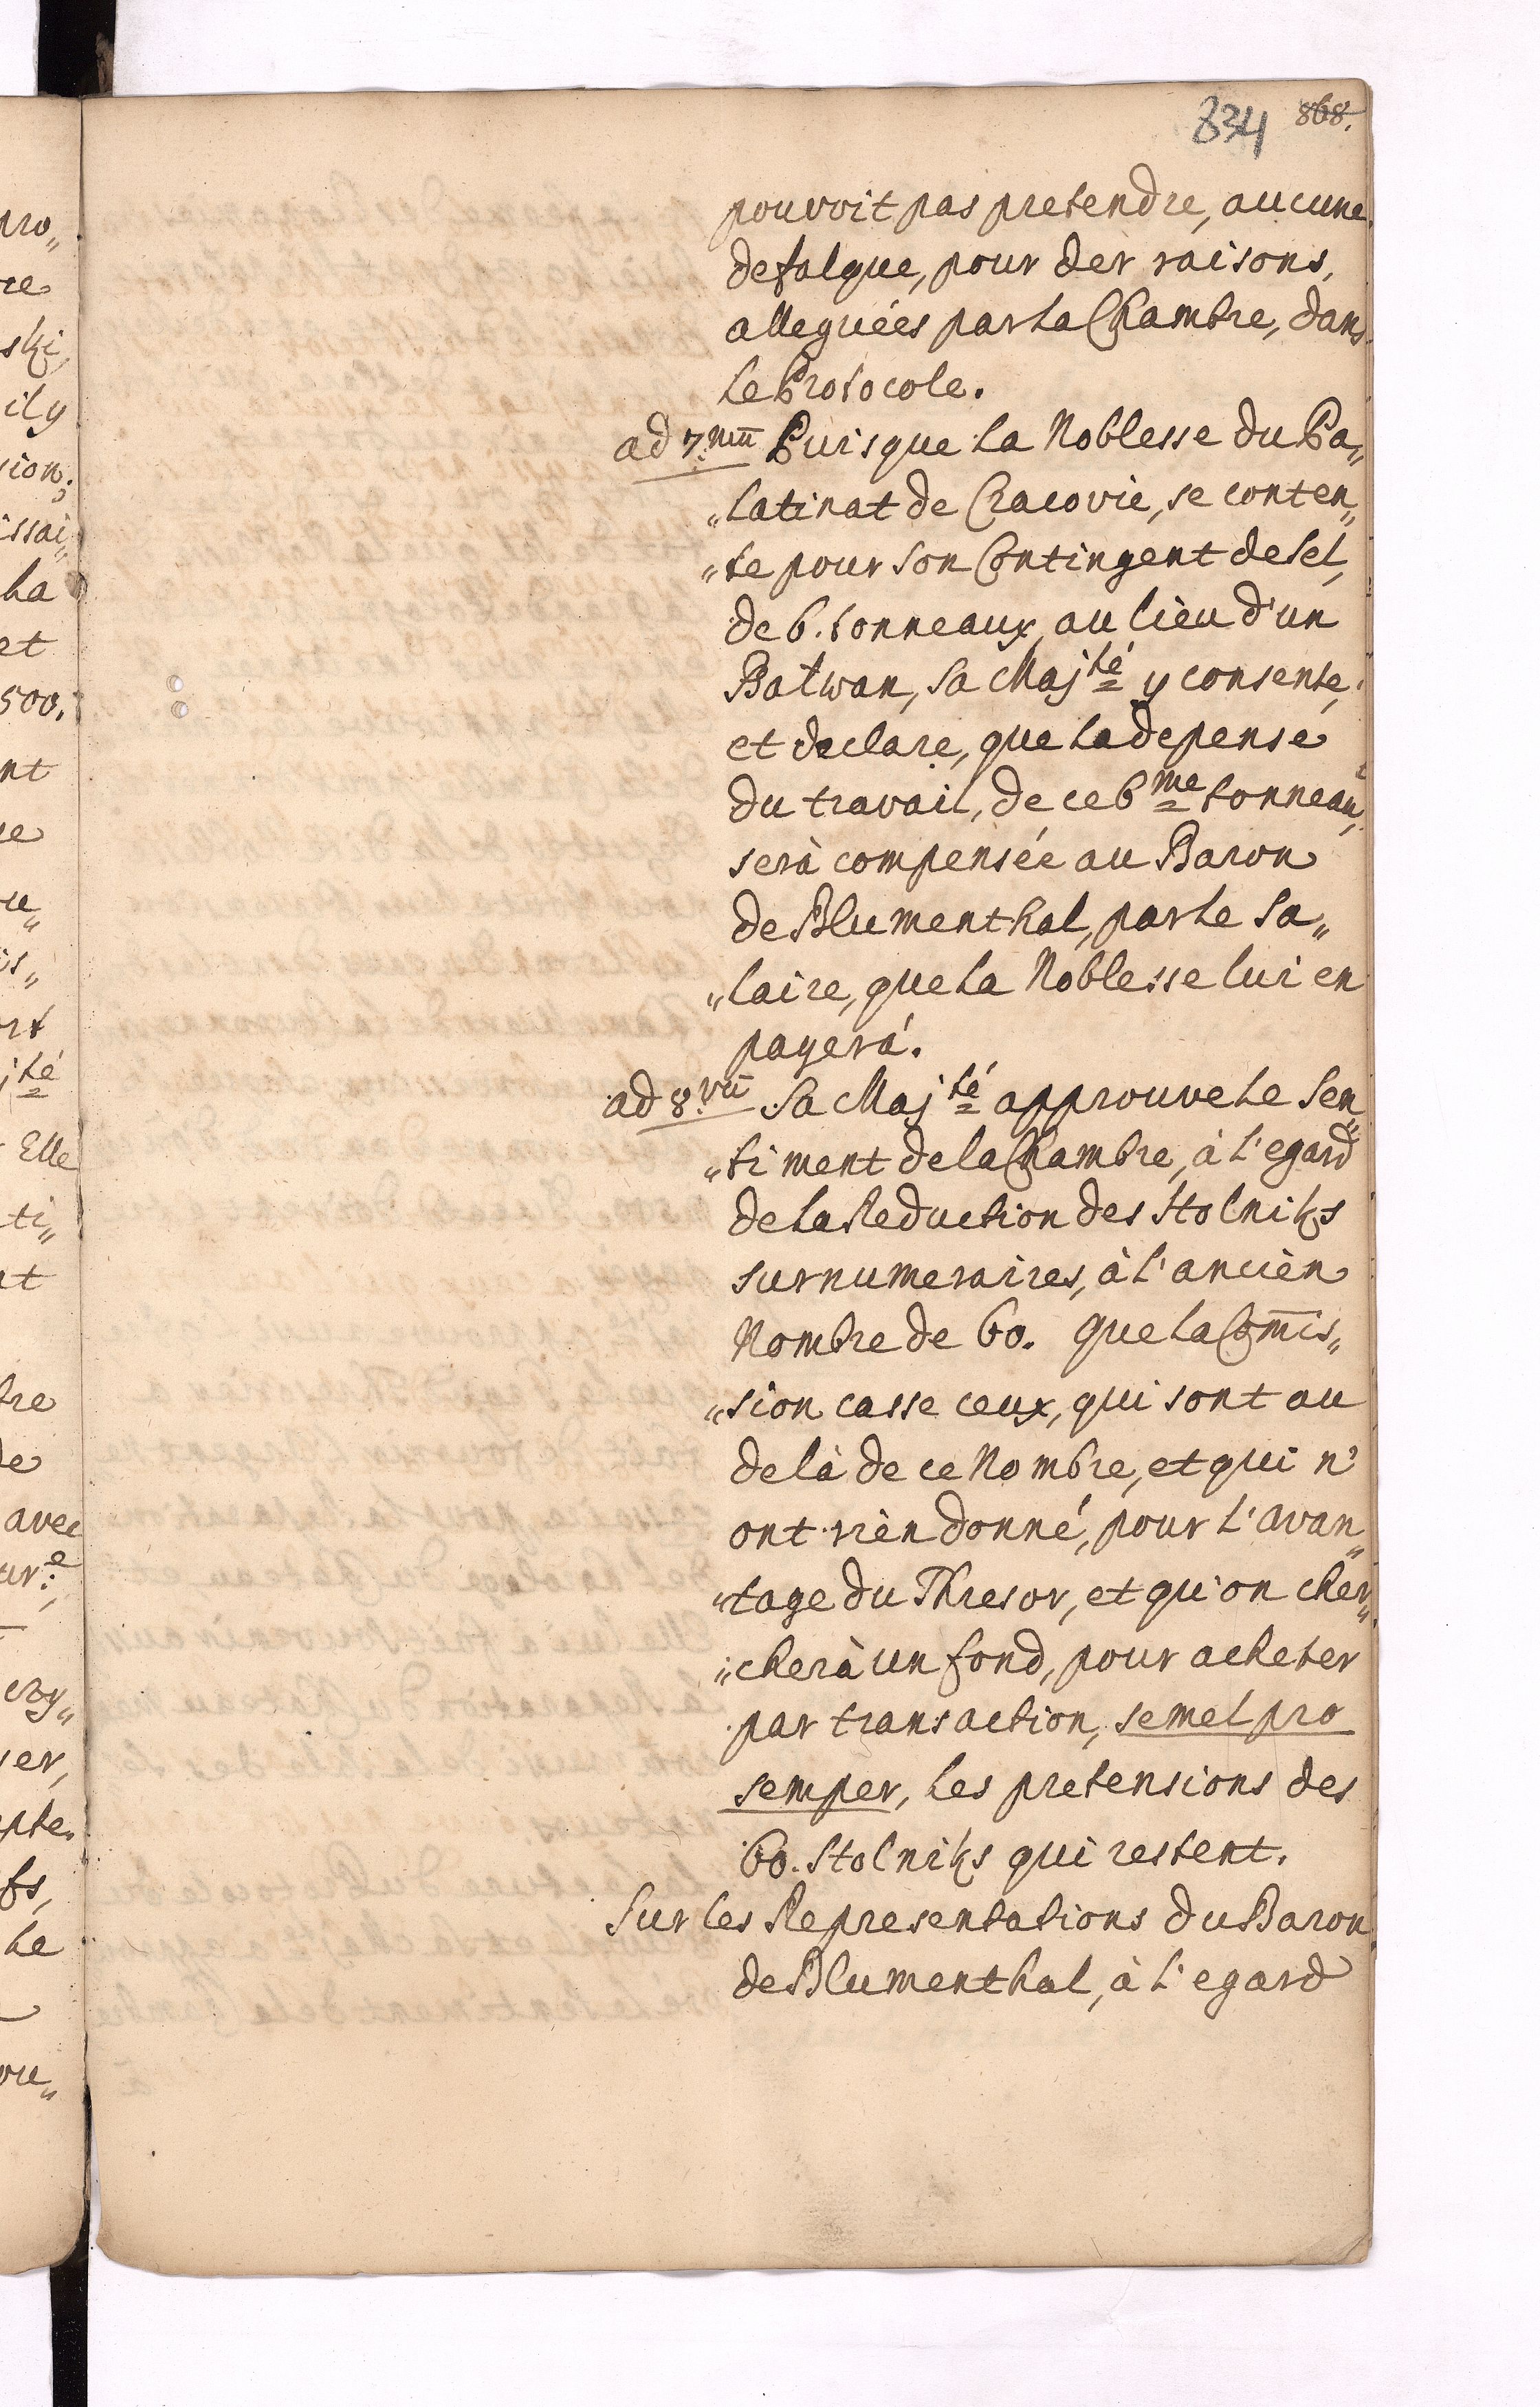 834 868.
pouvoit pas pretendre, aucune
defalque, pour der raisons,
alleguées par la Chambre, dans
le Protocole.
ad 7.mũ Puisque la Noblesse du Pa„
„latinat de Cracovie, se conten„
„te pour son Contingent de sel,
de 6. tonneaux, au lieu d'un
Batwan, Sa Majté y consente,
et declare, que la depense
du travail, de ce 6me tonneau,
serà compensée au Baron
de Blumenthal, par le Sa„
„laire, que la Noblesse lui en
payerá.
ad 8.vũ Sa Majté approuve le Sen„
„timent de la Chambre, à l'egard
de la Reduction des Stolniks
surnumeraires, à l'ancièn
Nombre de 60. que la Com̃is„
„sion casse ceux, qui sont au
delà de ce Nombre, et qui n'
ont rièn donné, pour l'avan„
„tage du Thresor, et qu'on cher„
„cherà un fond, pour acheter
par transaction, semel pro
semper, les pretensions des
60. Stolniks qui restent.
Sur les Representations du Baron
de Blumenthal, à l'egard
pro„
re
ski
il y
sion;
issai„
la
et
500.
nt
ue
ru„
is„
ort
jté
Elle
ti„
nt
tre
de
avec
ure:
czy„
ser,
pte.
fs,
le
ou„